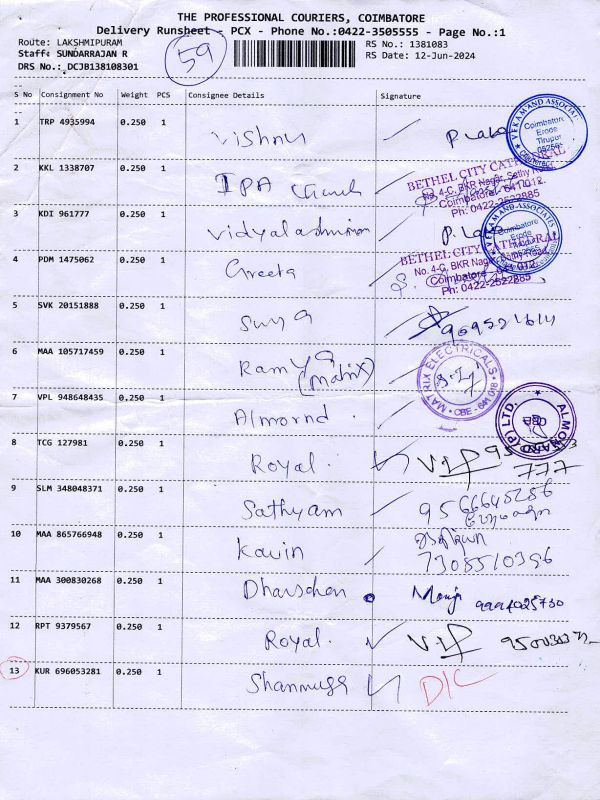 THE PROFESSIONAL COURIERS, COIMBATORE
Delivery Runsheet - PCX - Phone No.:0422-3505555 - Page No.:1
Route: LAKSHMIPURAM
Staff: SUNDARRAJAN R
DRS No.: DCJB138108301
59
RS No.: 1381083
RS Date: 12-Jun-2024
S No Consignment No Weight PCS Consignee Details Signature
1 TRP 4935994 0.250 1 Vishnu
2 KKL 1338707 0.250 1 IPA
BETHEL CITY CATHEDRAL
No. 4-C, BKR Nagar, Sathy Road
Coimbatore - 641 012.
Ph: 0422-2522885
3 KDI 961777 0.250 1
Coimbatore
Erode
Tirupur
4 PDM 1475062 0.250 1 Greeta
BETHEL CITY CATHEDRAL
No. 4-C, BKR Nagar, Sathy Road
Coimbatore - 641 012.
Ph: 0422-2522885
5 SVK 20151888 0.250 1 Surya
6 MAA 105717459 0.250 1 Ramya (Matrix)
MATRIX ELECTRICALS
CBE - 641 018
7 VPL 948648435 0.250 1 Almornd.
8 TCG 127981 0.250 1 Royal. VIP
777
9 SLM 348048371 0.250 1 Sathyam
10 MAA 865766948 0.250 1 Kavin
7308510396
11 MAA 300830268 0.250 1 Dharschan
12 RPT 9379567 0.250 1 Royal. VIP
13 KUR 696053281 0.250 1 D/C